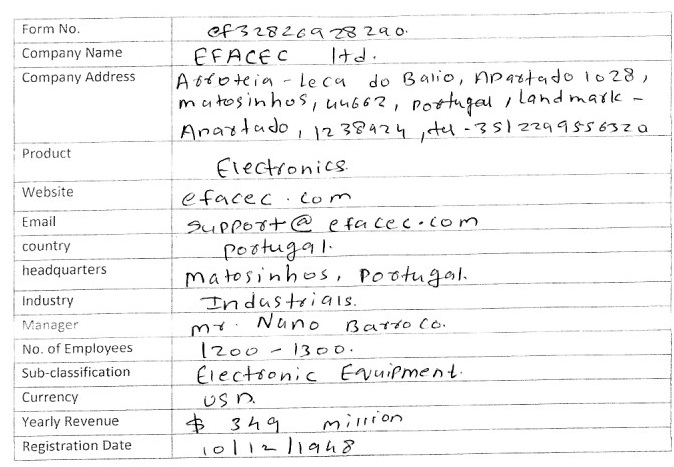 Form No. ef32826928290.
Company Name EFACEC ltd.
Company Address Arroteia - Leca do Balio, Apartado 1028,
matosinhos, 44662, portugal, landmark -
Apartado, 1238924, tel - 3512299556320
Product Electronics.
Website efacec.com
Email support@efacec.com
country portugal.
headquarters matosinhos, Portugal.
Industry Industrials.
Manager mr. Nuno Barroco.
No. of Employees 1200 - 1300.
Sub-classification Electronic Equipment.
Currency USD.
Yearly Revenue $ 349 million
Registration Date 10/12/1948